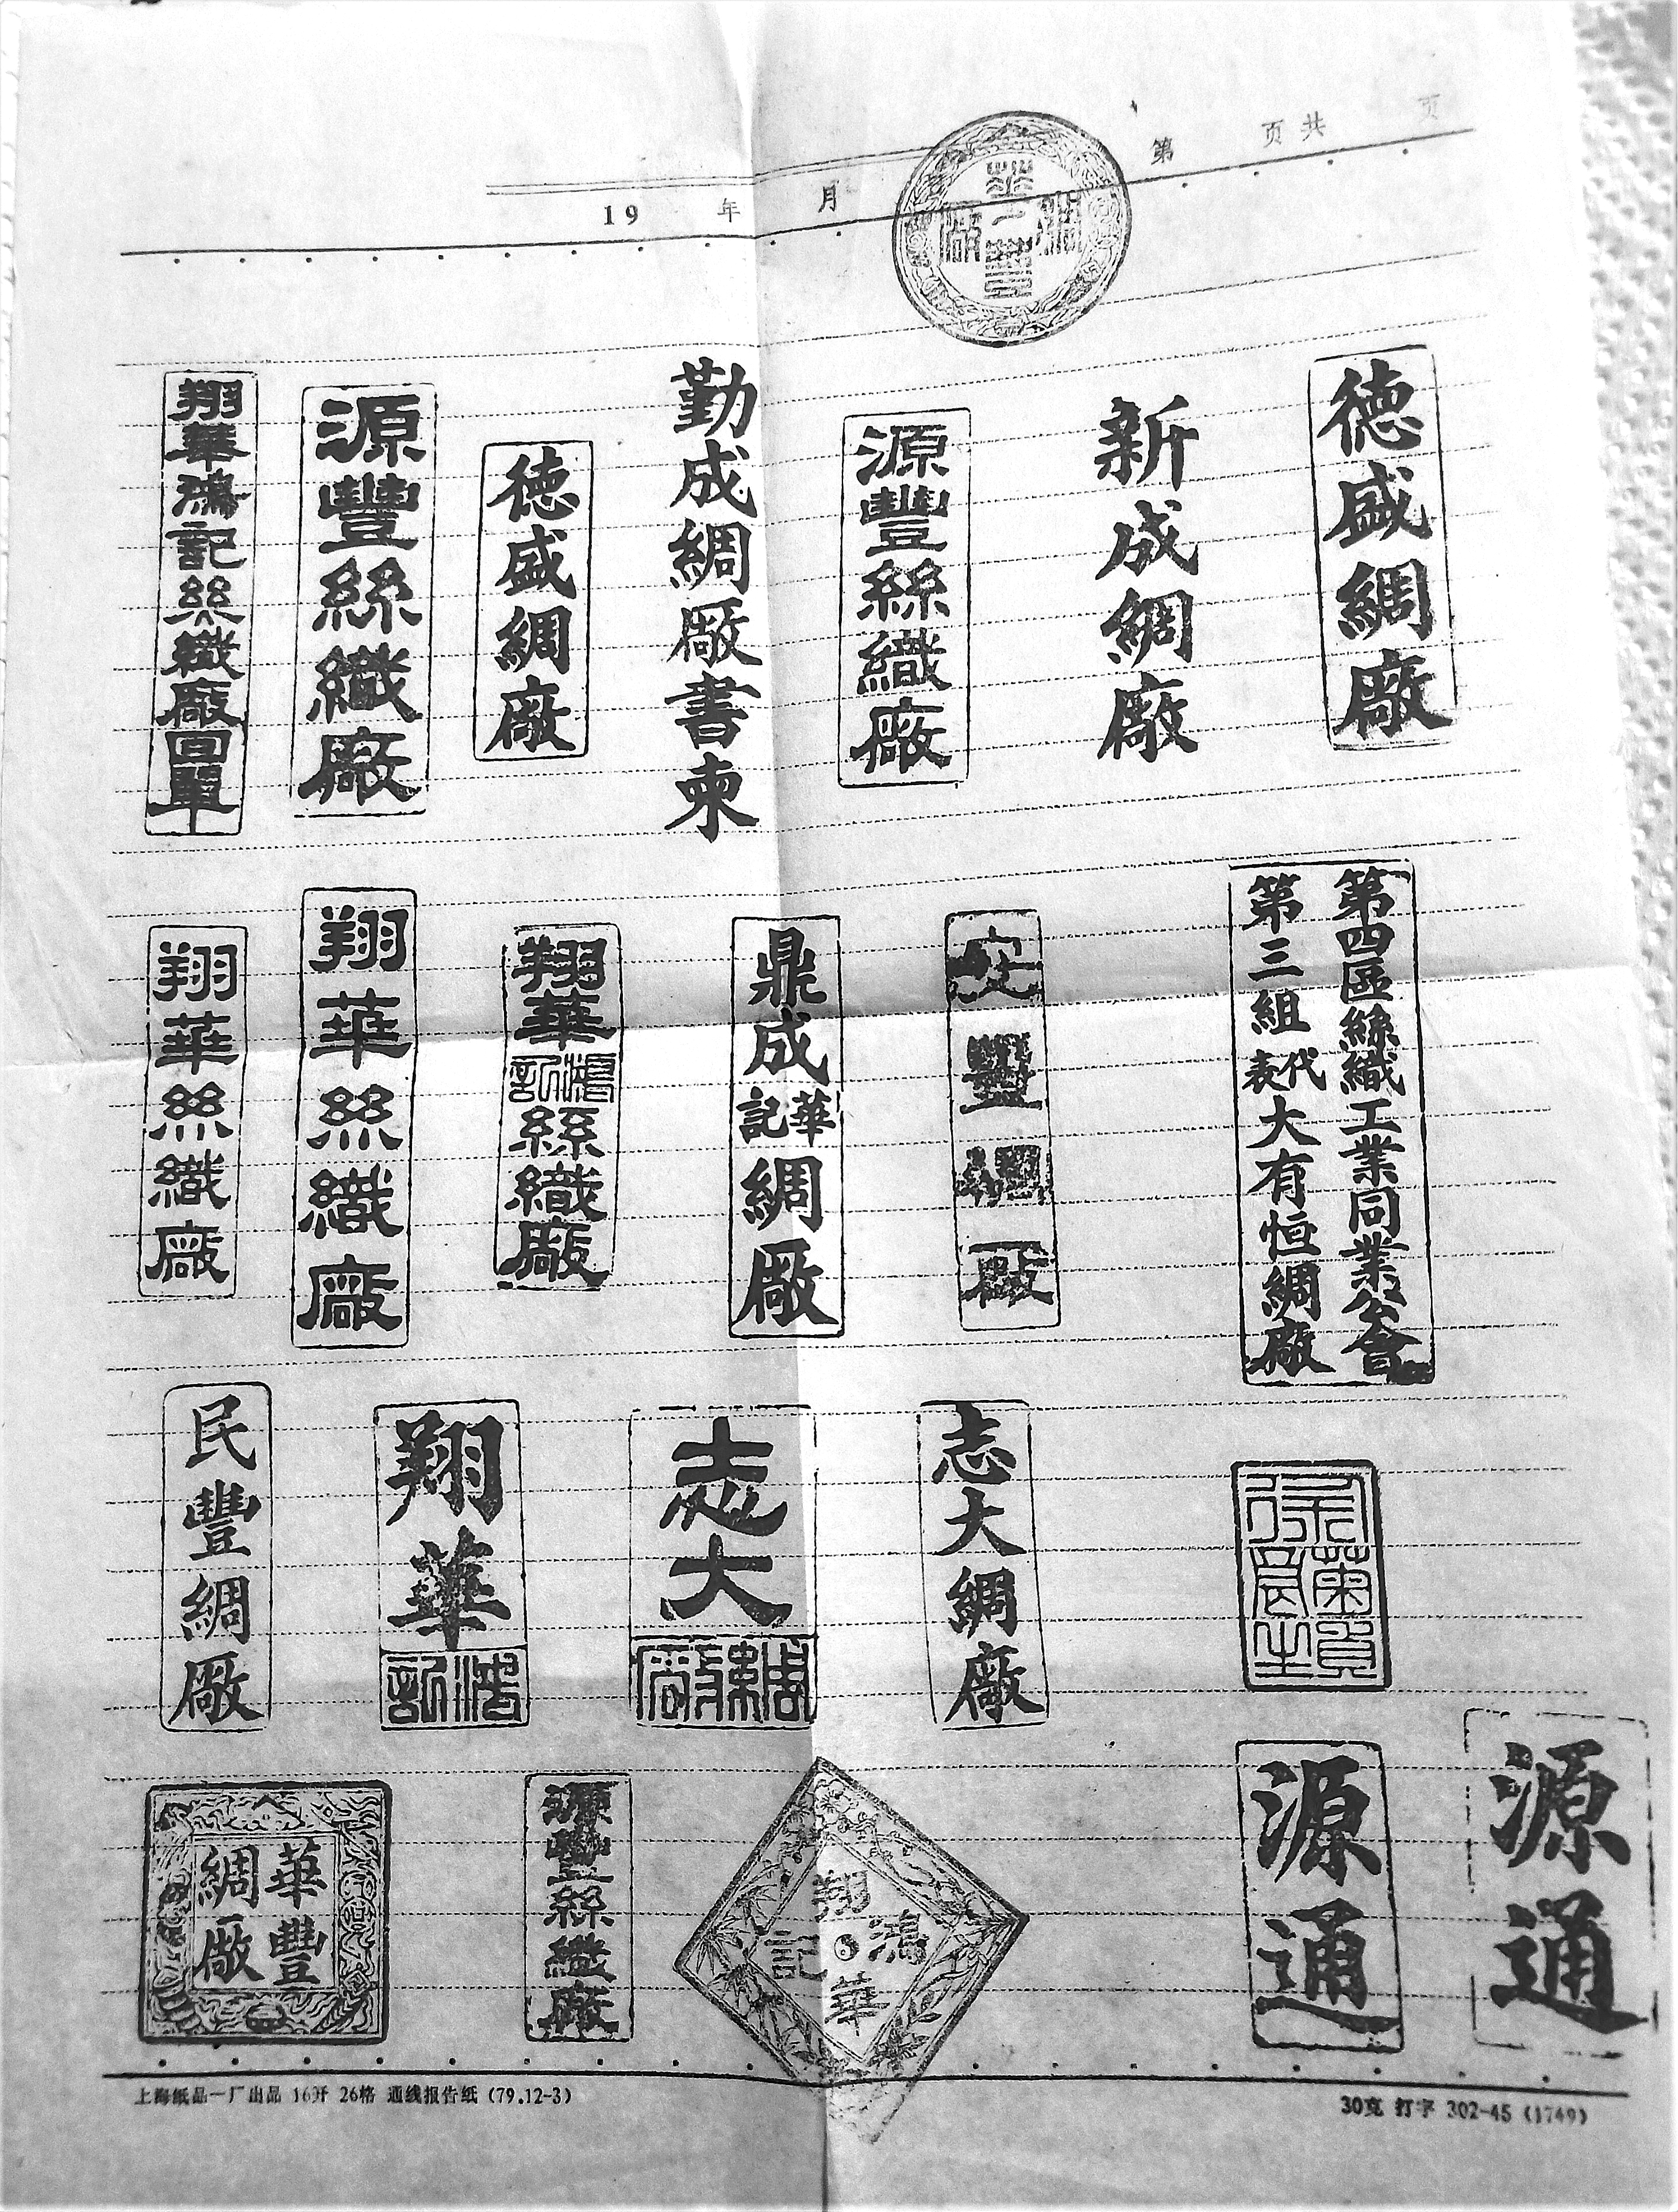 19 年 月 第 页共 页
德盛綢廠
新成綢廠
源豐絲織廠
勤成綢廠書柬
德盛綢廠
源豐絲織廠
翔華鴻記絲織廠回單
第四區絲織工業同業公會
第三組代表大有恒綢廠
安豐綢廠
鼎成華記綢廠
翔華鴻記絲織廠
翔華絲織廠
翔華絲織廠
志大綢廠
志大綢緞廠
翔華鴻記
民豐綢廠
源通
源通
翔華鴻記
源豐絲織廠
華豐綢廠
上海纸品一厂出品 16开 26格 通线报告纸 (79.12-3)
30克 打字 302-45 (1749)